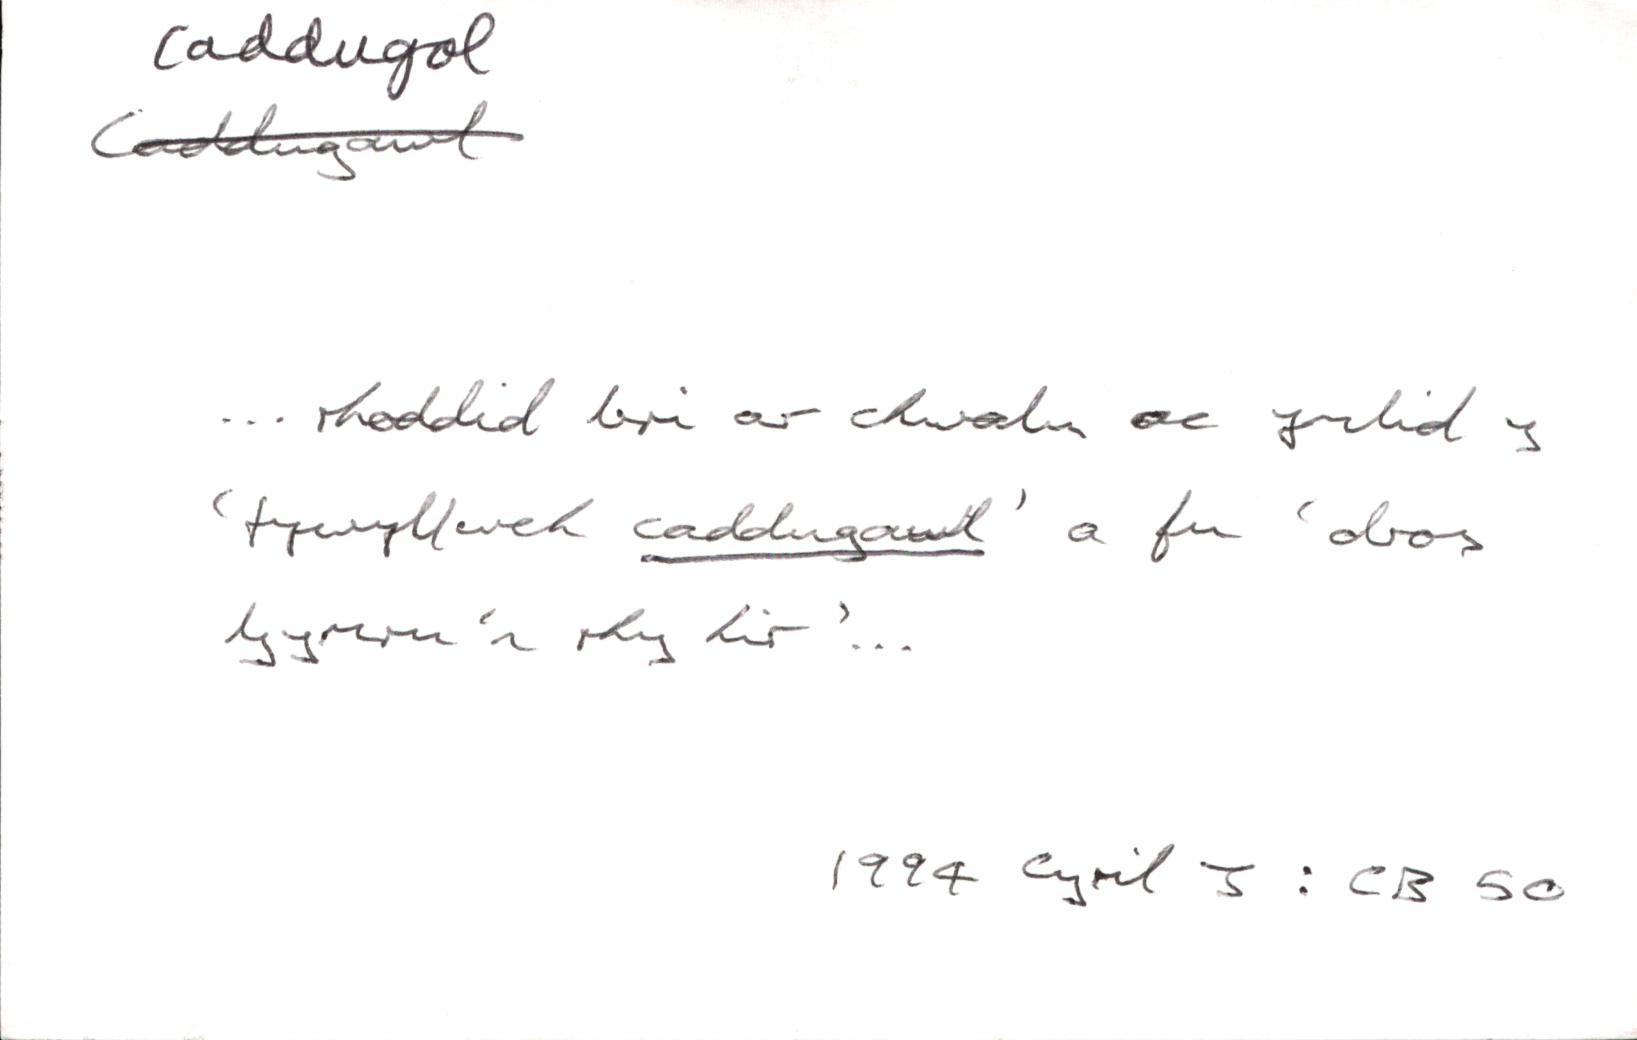 Caddugol
Caddugawl
... rhoddid bri ar chwalu ac ymlid y
'tywyllwch caddugawl' a fu 'dros
Gymru'n rhy hir'...
1994 Cyril J : CB 50